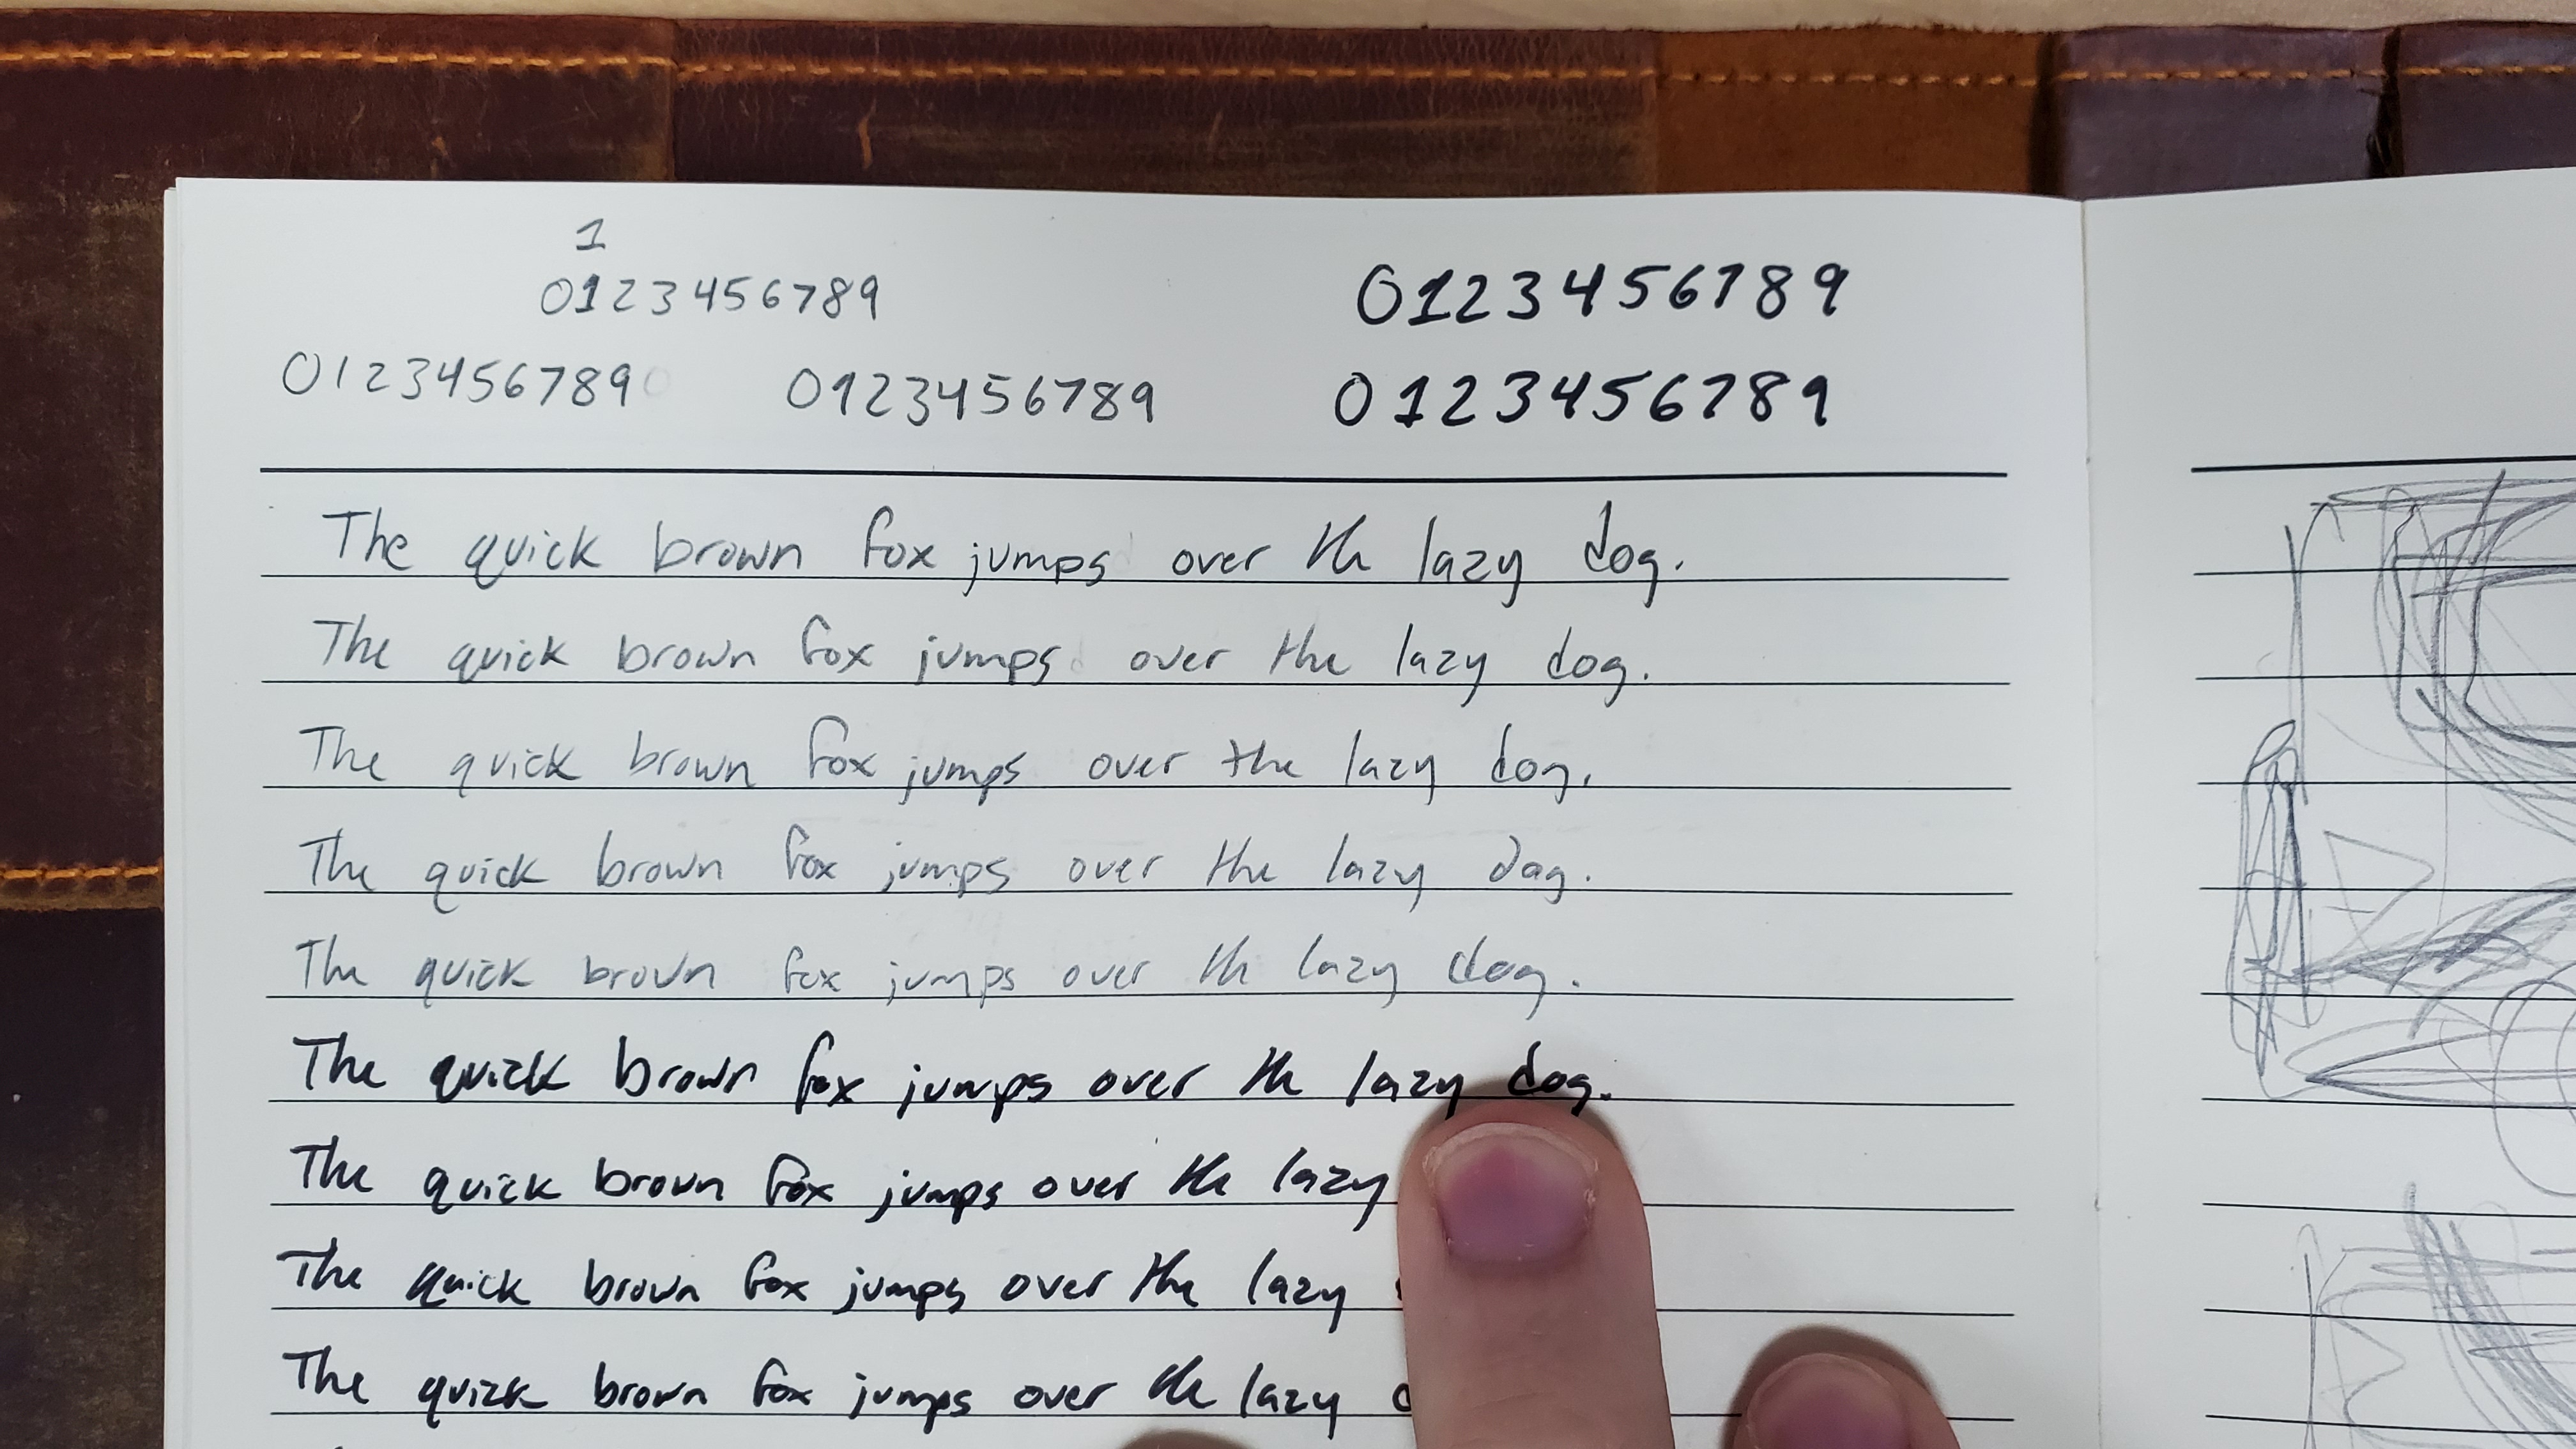 1
0123456789 0123456789
0123456789 0123456789 0123456789
The quick brown fox jumps over the lazy dog.
The quick brown fox jumps over the lazy dog.
The quick brown fox jumps over the lazy dog.
The quick brown fox jumps over the lazy dog.
The quick brown fox jumps over the lazy dog.
The quick brown fox jumps over the lazy dog.
The quick brown fox jumps over the lazy
The quick brown fox jumps over the lazy
The quick brown fox jumps over the lazy